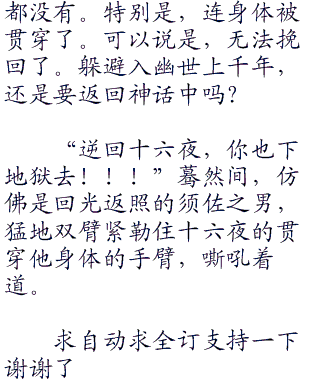 都没有。特别是，连身体被
贯穿了。可以说是，无法挽
回了。躲避入幽世上千年，
还是要返回神话中吗？
“逆回十六夜，你也下
地狱去！！！”蓦然间，仿
佛是回光返照的须佐之男，
猛地双臂紧勒住十六夜的贯
穿他身体的手臂，嘶吼着
道。
求自动求全订支持一下
谢谢了